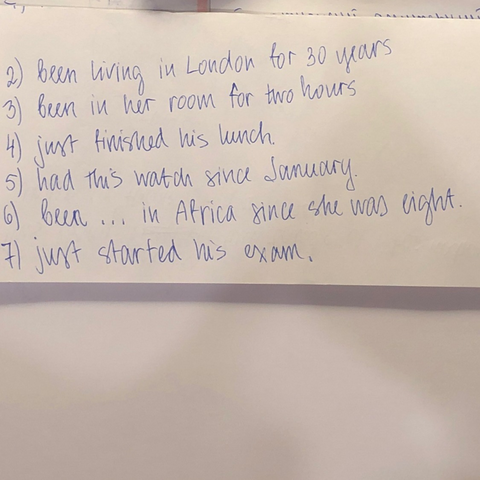 2) been living in London for 30 years
3) been in her room for two hours
4) just finished his lunch.
5) had this watch since January.
6) been ... in Africa since she was eight.
7) just started his exam.